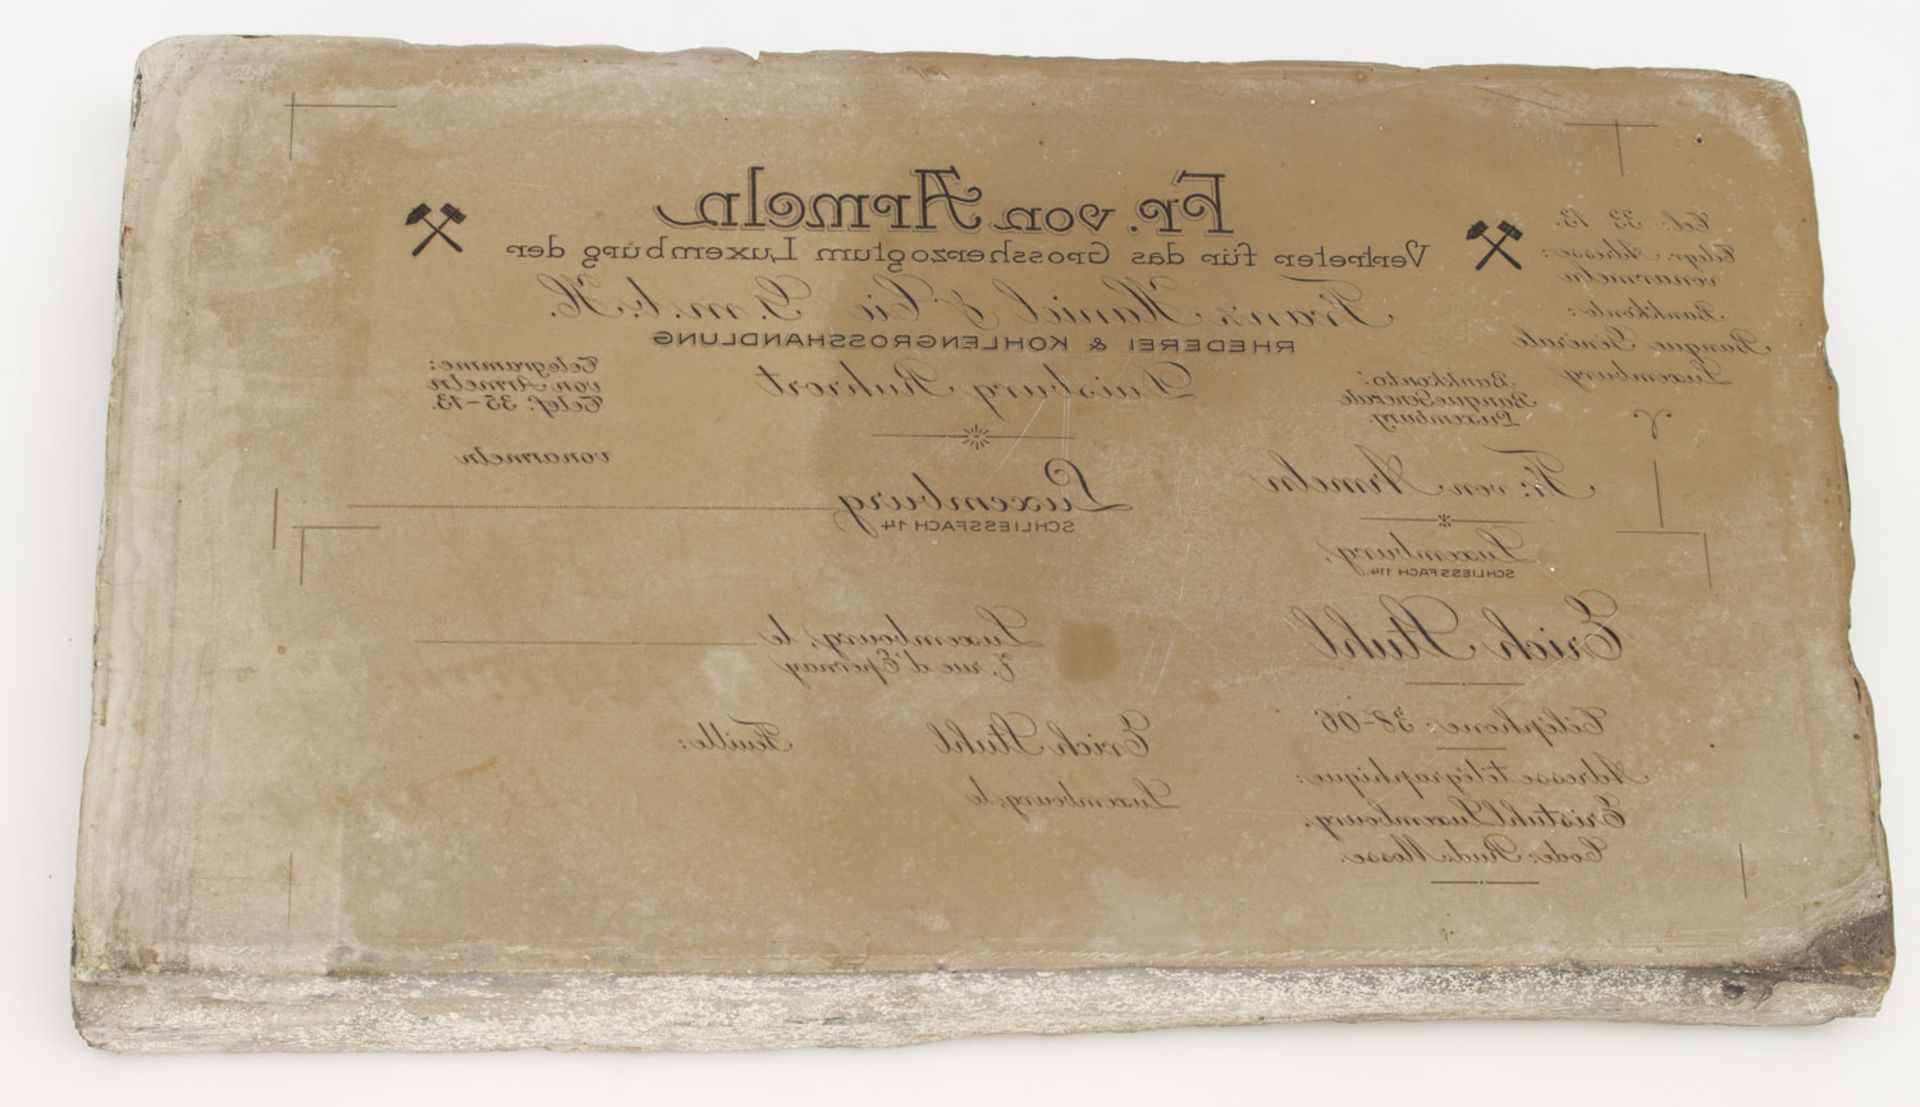 Fr. von Armeln
Vertreter für das Grossherzogtum Luxemburg der
Franz Haniel & Cie G.m.b.H.
RHEDEREI & KOHLENGROSSHANDLUNG
Duisburg Ruhrort
Luxemburg
SCHLIESSFACH 14
Tel: 33 13.
Telegr. Adresse:
vonarmeln
Bankkonto:
Banque Générale
Luxemburg
Bankkonto:
Banque Generale
Luxemburg.
Telegramme:
von Armeln
Telef: 35-13.
vonarmeln
Fr: von Armeln
Luxemburg,
SCHLIESSFACH 114
Erich Stuhl
Téléphone: 38-06
Adresse télégraphique:
Eristuhl Luxembourg.
Code: Rud. Mosse.
Luxembourg, le
7, rue d'Epernay
Erich Stuhl
Feuille:
Luxembourg, le